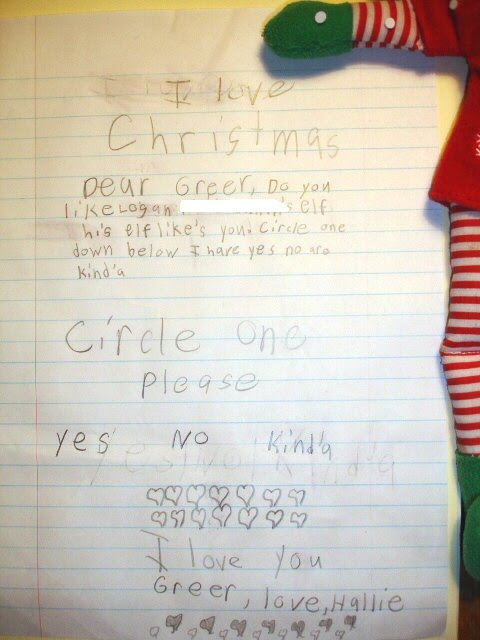 I love
Christmas
Dear Greer, Do you
like Logan 's elf
his elf like's you. Circle one
down below I have yes no aro
Kind'a
Circle One
Please
yes No Kind'a
I love you
Greer, love, Hallie